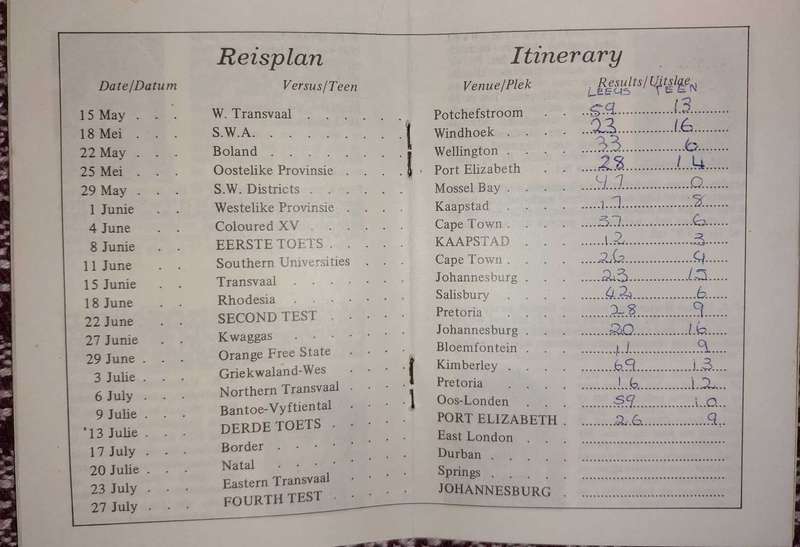 Reisplan Itinerary
Date/Datum Versus/Teen Venue/Plek Results/Uitslae
LEEUS TEEN
15 May . . . W. Transvaal . . . . . . Potchefstroom . . 59 13
18 Mei . . . S.W.A. . . . . . . . . Windhoek . . . . 23 16
22 May . . . Boland . . . . . . . . Wellington . . . . 33 6
25 Mei . . . Oostelike Provinsie . . . . Port Elizabeth . . 28 14
29 May . . . S.W. Districts . . . . . . Mossel Bay . . . . 97 0
1 Junie . . Westelike Provinsie . . . . Kaapstad . . . . 17 8
4 June . . Coloured XV . . . . . . Cape Town . . . . 37 6
8 Junie . . EERSTE TOETS . . . . . KAAPSTAD . . . 12 3
11 June . . Southern Universities . . . Cape Town . . . . 26 4
15 Junie . . Transvaal . . . . . . . Johannesburg . . . 23 15
18 June . . Rhodesia . . . . . . . Salisbury . . . . 42 6
22 June . . SECOND TEST . . . . . Pretoria . . . . 28 9
27 Junie . . Kwaggas . . . . . . . Johannesburg . . . 20 16
29 June . . . Orange Free State . . . . Bloemfontein . . . 11 9
3 Julie . . . Griekwaland-Wes . . . . Kimberley . . . . 69 13
6 July . . . Northern Transvaal . . . . Pretoria . . . . 16 12
9 Julie . . . Bantoe-Vyftiental . . . . Oos-Londen . . . 59 10
13 Julie . . . DERDE TOETS . . . . . PORT ELIZABETH . 26 9
17 July . . . Border . . . . . . . . East London . . .
20 Julie . . . Natal . . . . . . . . Durban . . . . .
23 July . . . Eastern Transvaal . . . . Springs . . . . .
27 July . . . FOURTH TEST . . . . . JOHANNESBURG .